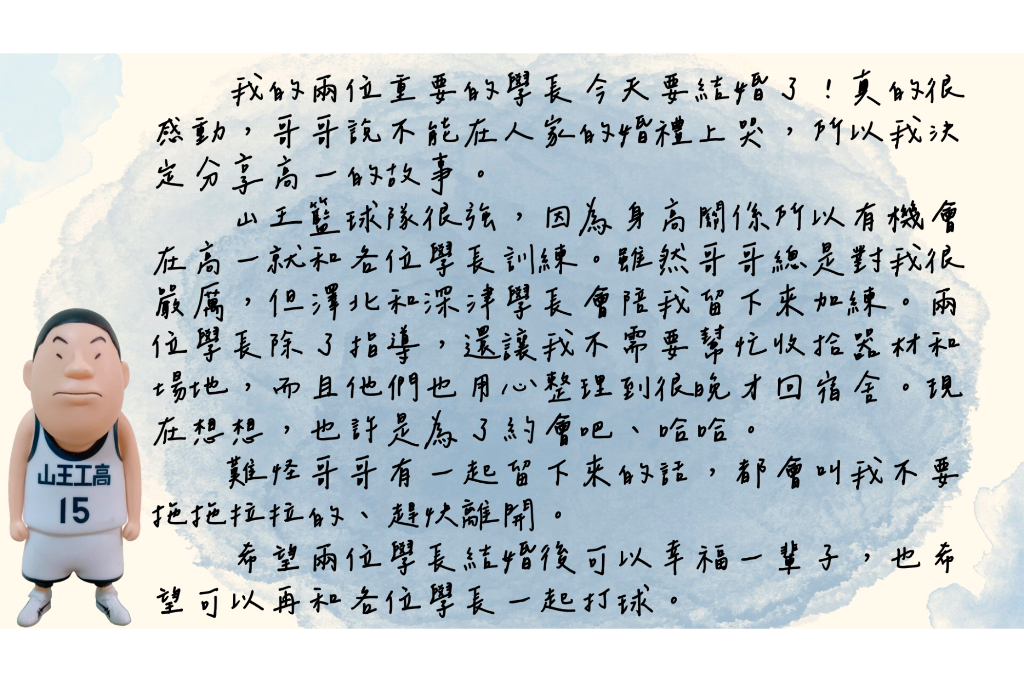 我的兩位重要的學長今天要結婚了！真的很
感動，哥哥說不能在人家的婚禮上哭，所以我決
定分享高一的故事。
山王籃球隊很強，因為身高關係所以有機會
在高一就和各位學長訓練。雖然哥哥總是對我很
嚴厲，但澤北和深津學長會陪我留下來加練。兩
位學長除了指導，還讓我不需要幫忙收拾器材和
場地，而且他們也用心整理到很晚才回宿舍。現
在想想，也許是為了約會吧、哈哈。
難怪哥哥有一起留下來的話，都會叫我不要
拖拖拉拉的、趕快離開。
希望兩位學長結婚後可以幸福一輩子，也希
望可以再和各位學長一起打球。
山王工高
15